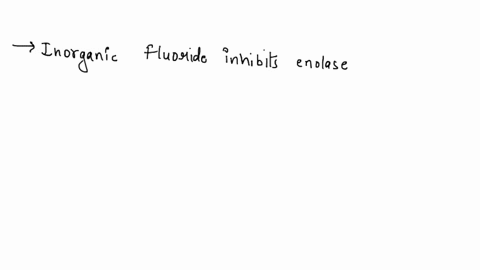 → Inorganic fluoride inhibits enolase